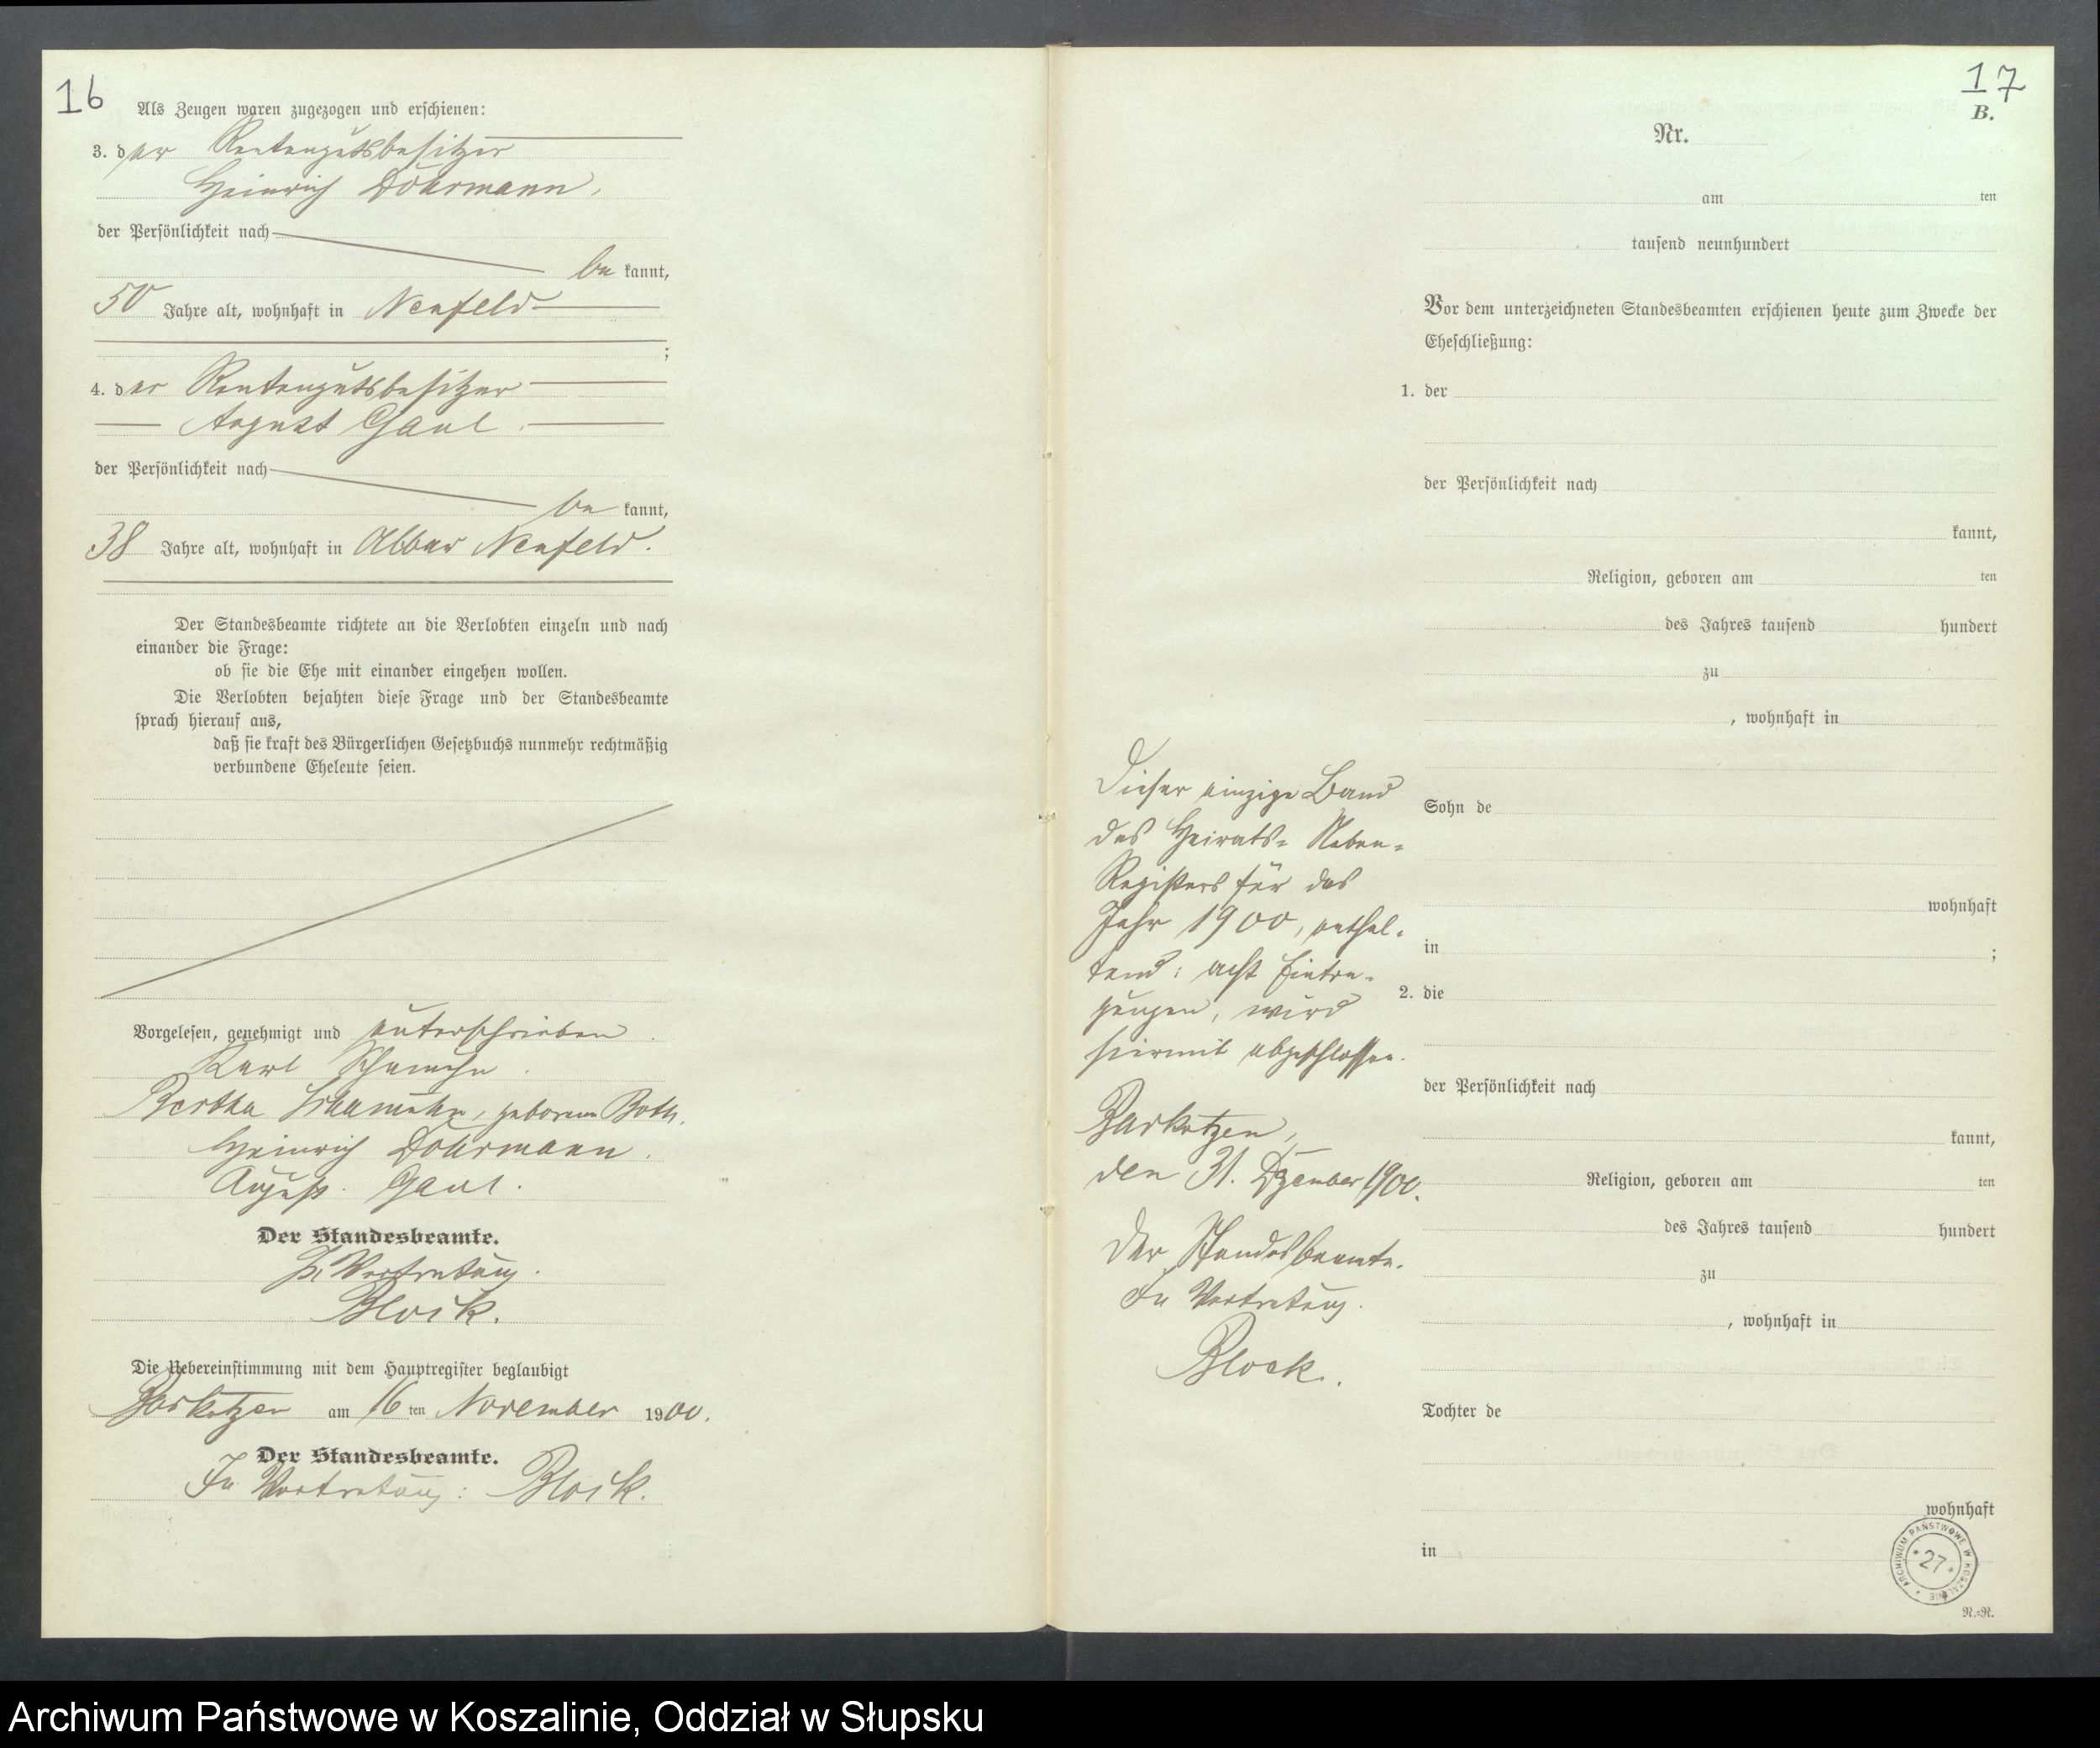 16
Als Zeugen waren zugezogen und erschienen:
3. der Rentengutsbesitzer
Heinrich Döhrmann,
der Persönlichkeit nach
be kannt,
50 Jahre alt, wohnhaft in Neufeld
;
4. der Rentengutsbesitzer
August Gaul.
der Persönlichkeit nach
be kannt,
38 Jahre alt, wohnhaft in Neufeld.
Der Standesbeamte richtete an die Verlobten einzeln und nach
einander die Frage:
ob sie die Ehe mit einander eingehen wollen.
Die Verlobten bejahten diese Frage und der Standesbeamte
sprach hierauf aus,
daß sie kraft des Bürgerlichen Gesetzbuchs nunmehr rechtmäßig
verbundene Eheleute seien.
Vorgelesen, genehmigt und unterschrieben.
Karl
Bertha geborene Both.
Heinrich Döhrmann.
August Gaul.
Der Standesbeamte.
In Vertretung.
Block.
Die Uebereinstimmung mit dem Hauptregister beglaubigt
Barkotzen am 16 ten November 1900.
Der Standesbeamte.
In Vertretung: Block.
17
B.
Nr.
am ten
tausend neunhundert
Vor dem unterzeichneten Standesbeamten erschienen heute zum Zwecke der
Eheschließung:
1. der
der Persönlichkeit nach
kannt,
Religion, geboren am ten
des Jahres tausend hundert
zu
, wohnhaft in
Sohn de
wohnhaft
in ;
2. die
der Persönlichkeit nach
kannt,
Religion, geboren am ten
des Jahres tausend hundert
zu
, wohnhaft in
Tochter de
wohnhaft
in
Dieser einzige Band
des Heirats- Neben-
Registers für das
Jahr 1900, enthal-
tend: acht Eintra-
gungen, wird
hiermit abgeschlossen.
Barkotzen,
den 31. Dezember 1900.
Der Standesbeamte.
In Vertretung.
Block.
ARCHIWUM PAŃSTWOWE W KOSZALINIE
* 27 *
N.=R.
Archiwum Państwowe w Koszalinie, Oddział w Słupsku